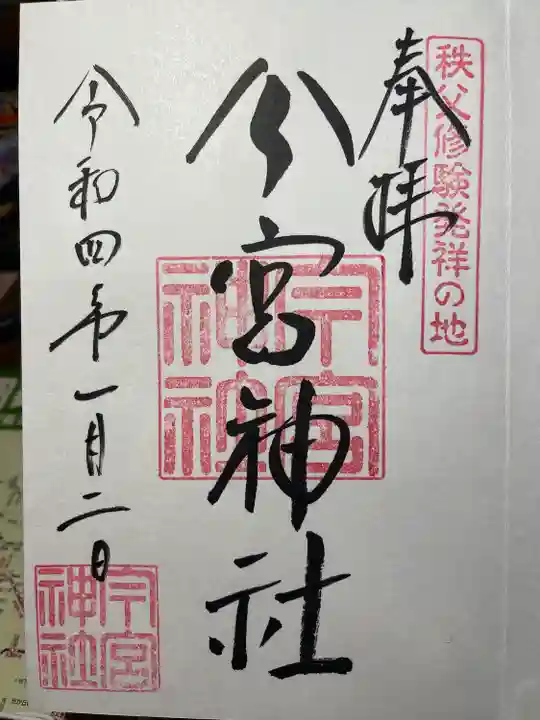 秩父修験発祥の地
奉拝
今宮神社
今宮神社
令和四年一月二日
今宮神社